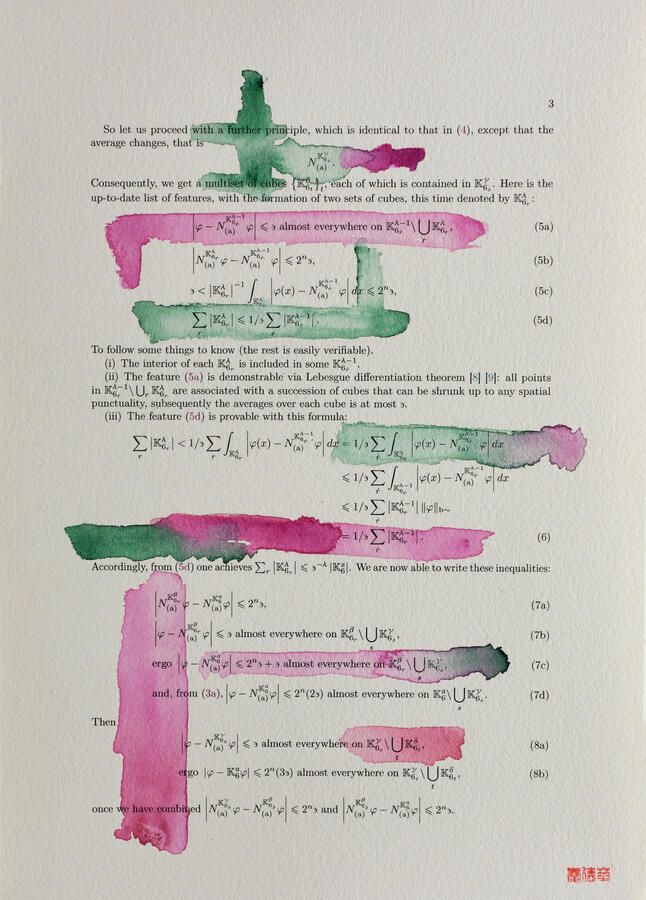 3
So let us proceed with a further principle, which is identical to that in (4), except that the
average changes, that is
N_{(a)}^{𝕂_{6_s}^γ}.
Consequently, we get a multiset of cubes {𝕂_{6_t}^δ}_t, each of which is contained in 𝕂_{6_s}^γ. Here is the
up-to-date list of features, with the formation of two sets of cubes, this time denoted by 𝕂_{6_r}^λ:
|φ − N_{(a)}^{𝕂_{6_r}^{λ−1}} φ| ⩽ э almost everywhere on 𝕂_{6_r}^{λ−1} \ ⋃_r 𝕂_{6_r}^λ, (5a)
|N_{(a)}^{𝕂_{6_r}^λ} φ − N_{(a)}^{𝕂_{6_r}^{λ−1}} φ| ⩽ 2ⁿэ, (5b)
э < |𝕂_{6_r}^λ|^{−1} ∫_{𝕂_{6_r}^λ} |φ(x) − N_{(a)}^{𝕂_{6_r}^{λ−1}} φ| dx ⩽ 2ⁿэ, (5c)
∑_r |𝕂_{6_r}^λ| ⩽ 1/э ∑_ṙ |𝕂_{6_ṙ}^{λ−1}|. (5d)
To follow some things to know (the rest is easily verifiable).
(i) The interior of each 𝕂_{6_r}^λ is included in some 𝕂_{6_ṙ}^{λ−1}.
(ii) The feature (5a) is demonstrable via Lebesgue differentiation theorem [8] [9]: all points
in 𝕂_{6_r}^{λ−1} \ ⋃_r 𝕂_{6_r}^λ are associated with a succession of cubes that can be shrunk up to any spatial
punctuality, subsequently the averages over each cube is at most э.
(iii) The feature (5d) is provable with this formula:
∑_r |𝕂_{6_r}^λ| < 1/э ∑_r ∫_{𝕂_{6_r}^λ} |φ(x) − N_{(a)}^{𝕂_{6_r}^{λ−1}} φ| dx = 1/э ∑_ṙ ∫_{𝕂_{6_r}^λ} |φ(x) − N_{(a)}^{𝕂_{6_r}^{λ−1}} φ| dx
⩽ 1/э ∑_ṙ ∫_{𝕂_{6_ṙ}^{λ−1}} |φ(x) − N_{(a)}^{𝕂_{6_r}^{λ−1}} φ| dx
⩽ 1/э ∑_ṙ |𝕂_{6_ṙ}^{λ−1}| ‖φ‖_{b∼}
= 1/э ∑_ṙ |𝕂_{6_ṙ}^{λ−1}|. (6)
Accordingly, from (5d) one achieves ∑_r |𝕂_{6_r}^λ| ⩽ э^{−λ} |𝕂_6^α|. We are now able to write these inequalities:
|N_{(a)}^{𝕂_{6_r}^β} φ − N_{(a)}^{𝕂_6^α} φ| ⩽ 2ⁿэ, (7a)
|φ − N_{(a)}^{𝕂_{6_r}^β} φ| ⩽ э almost everywhere on 𝕂_{6_r}^β \ ⋃_s 𝕂_{6_s}^γ, (7b)
ergo |φ − N_{(a)}^{𝕂_6^α} φ| ⩽ 2ⁿэ + э almost everywhere on 𝕂_{6_r}^β \ ⋃_s 𝕂_{6_s}^γ, (7c)
and, from (3a), |φ − N_{(a)}^{𝕂_6^α} φ| ⩽ 2ⁿ(2э) almost everywhere on 𝕂_6^α \ ⋃_s 𝕂_{6_s}^γ. (7d)
Then
|φ − N_{(a)}^{𝕂_{6_s}^γ} φ| ⩽ э almost everywhere on 𝕂_{6_s}^γ \ ⋃_t 𝕂_{6_t}^δ, (8a)
ergo |φ − 𝕂_6^α φ| ⩽ 2ⁿ(3э) almost everywhere on 𝕂_{6_s}^γ \ ⋃_t 𝕂_{6_t}^δ, (8b)
once we have combined |N_{(a)}^{𝕂_{6_s}^γ} φ − N_{(a)}^{𝕂_{6_r}^β} φ| ⩽ 2ⁿэ and |N_{(a)}^{𝕂_{6_r}^β} φ − N_{(a)}^{𝕂_6^α} φ| ⩽ 2ⁿэ.